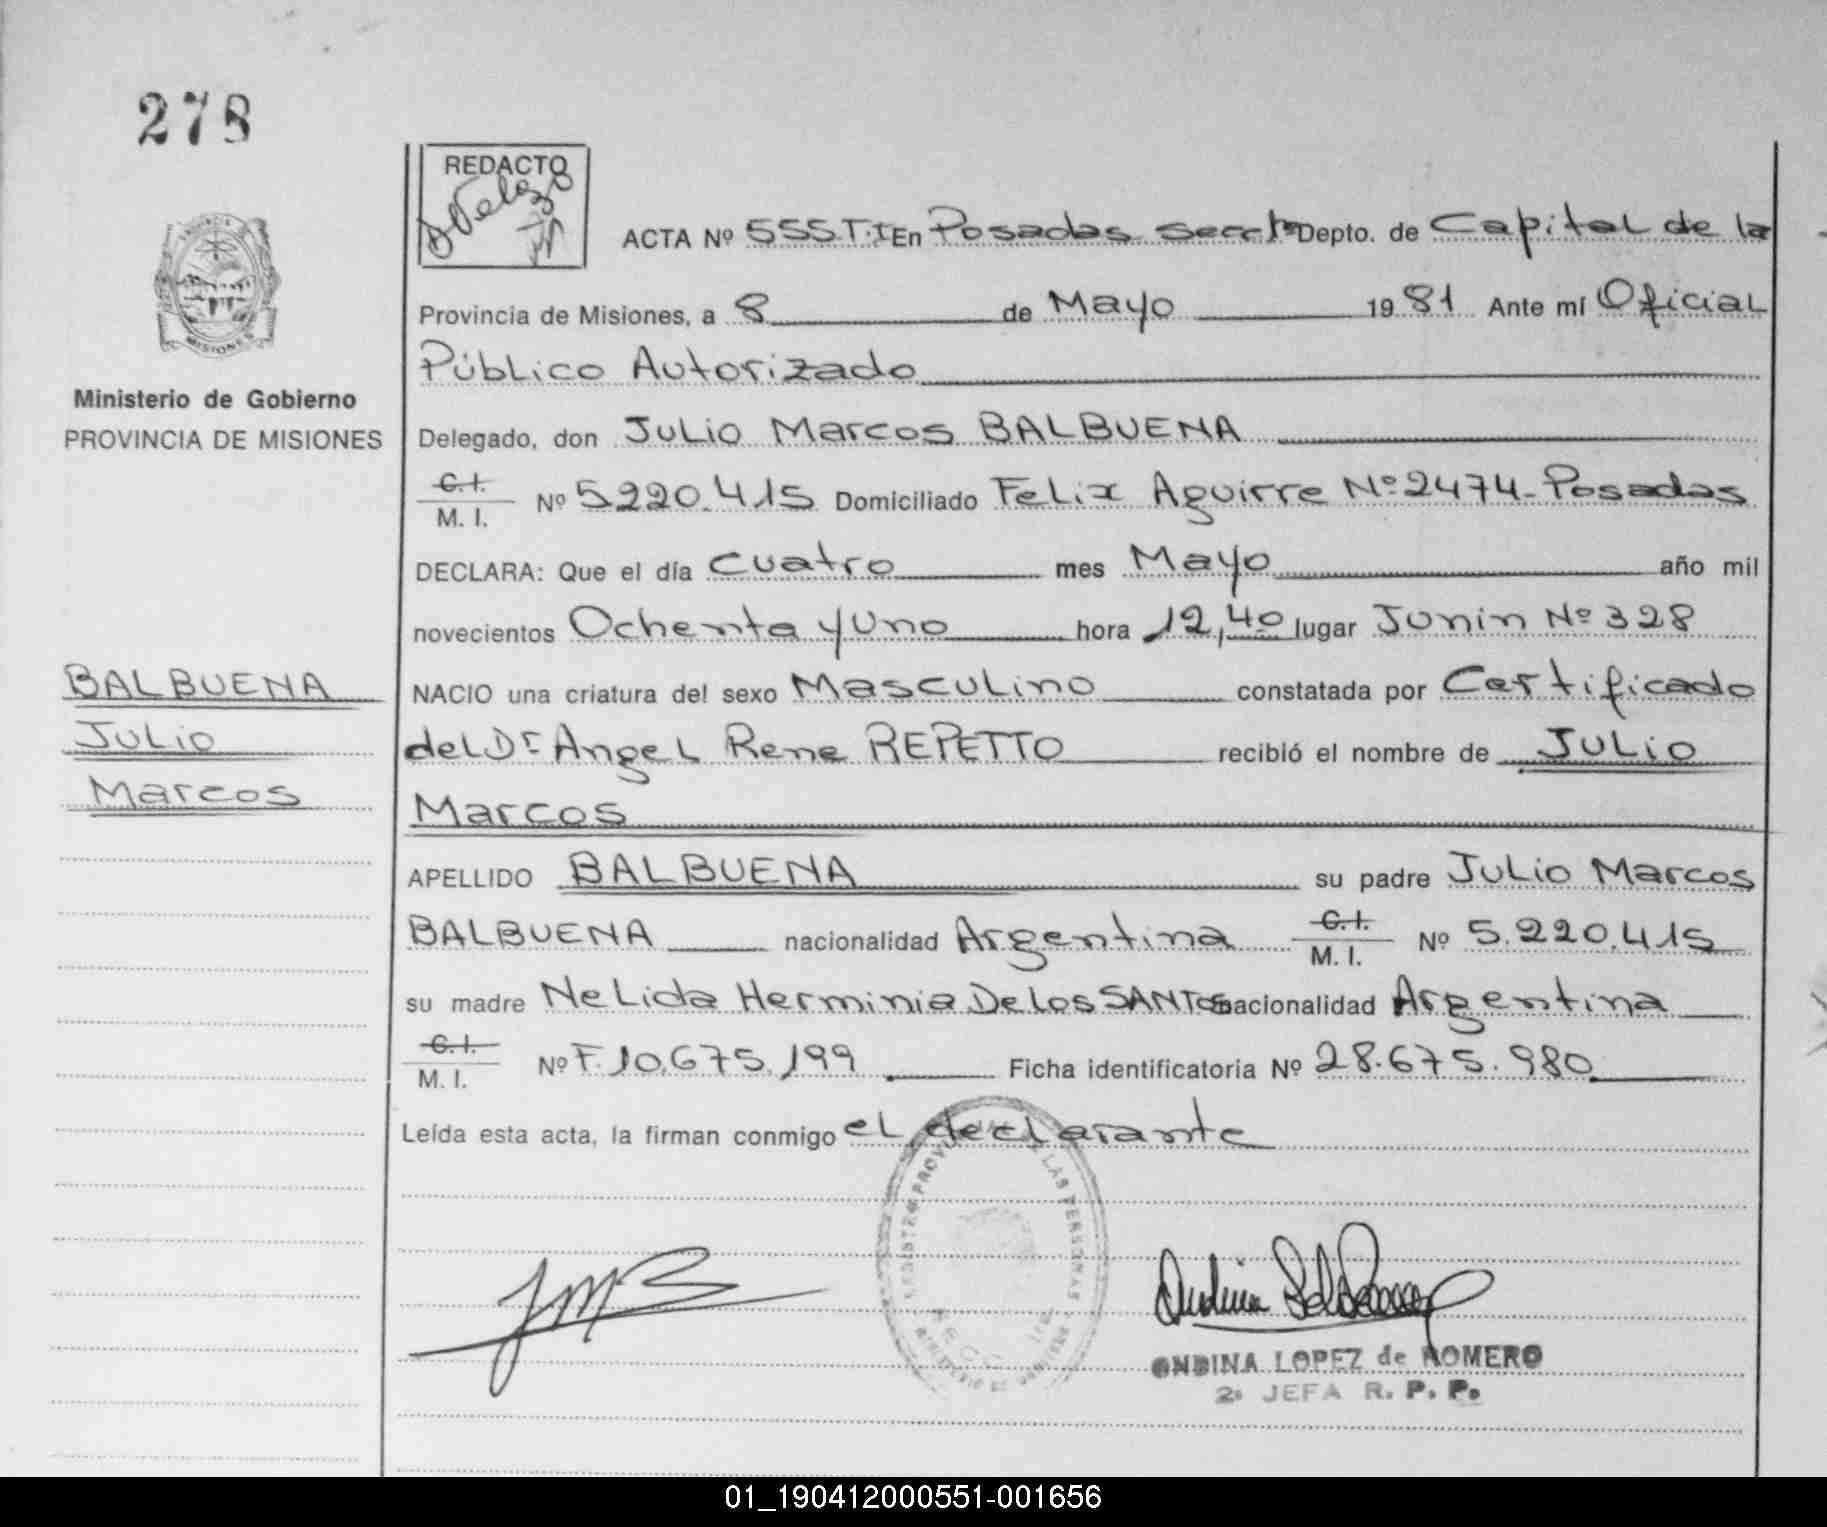 278
REDACTO
ACTA Nº 555 T.I En Posadas Secc 1ª Depto. de Capital de la
Provincia de Misiones, a 8 de Mayo 1981 Ante mí Oficial
Público Autorizado
Delegado, don Julio Marcos BALBUENA
C.I.
M. I. Nº 5.220.415 Domiciliado Felix Aguirre Nº 2474-Posadas
DECLARA: Que el día cuatro mes Mayo año mil
novecientos Ochenta y Uno hora 12,40 lugar Junin Nº 328
NACIO una criatura del sexo Masculino constatada por Certificado
del Dr Angel Rene REPETTO recibió el nombre de Julio
Marcos
APELLIDO BALBUENA su padre Julio Marcos
BALBUENA nacionalidad Argentina C.I.
M. I. Nº 5.220.415
su madre Nelida Herminia De los SANTOS nacionalidad Argentina
C.I.
M. I. Nº F.10.675.199 Ficha identificatoria Nº 28.675.980
Leída esta acta, la firman conmigo el declarante
PROVINCIA
MISIONES
Ministerio de Gobierno
PROVINCIA DE MISIONES
BALBUENA
Julio
Marcos
REGISTRO PROV DE LAS PERSONAS
JMB
ONDINA LOPEZ de ROMERO
2ª JEFA R. P. P.
01_190412000551-001656